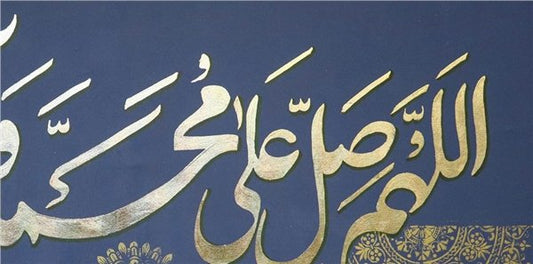 اللّهمّ صلّ علی محمّد و